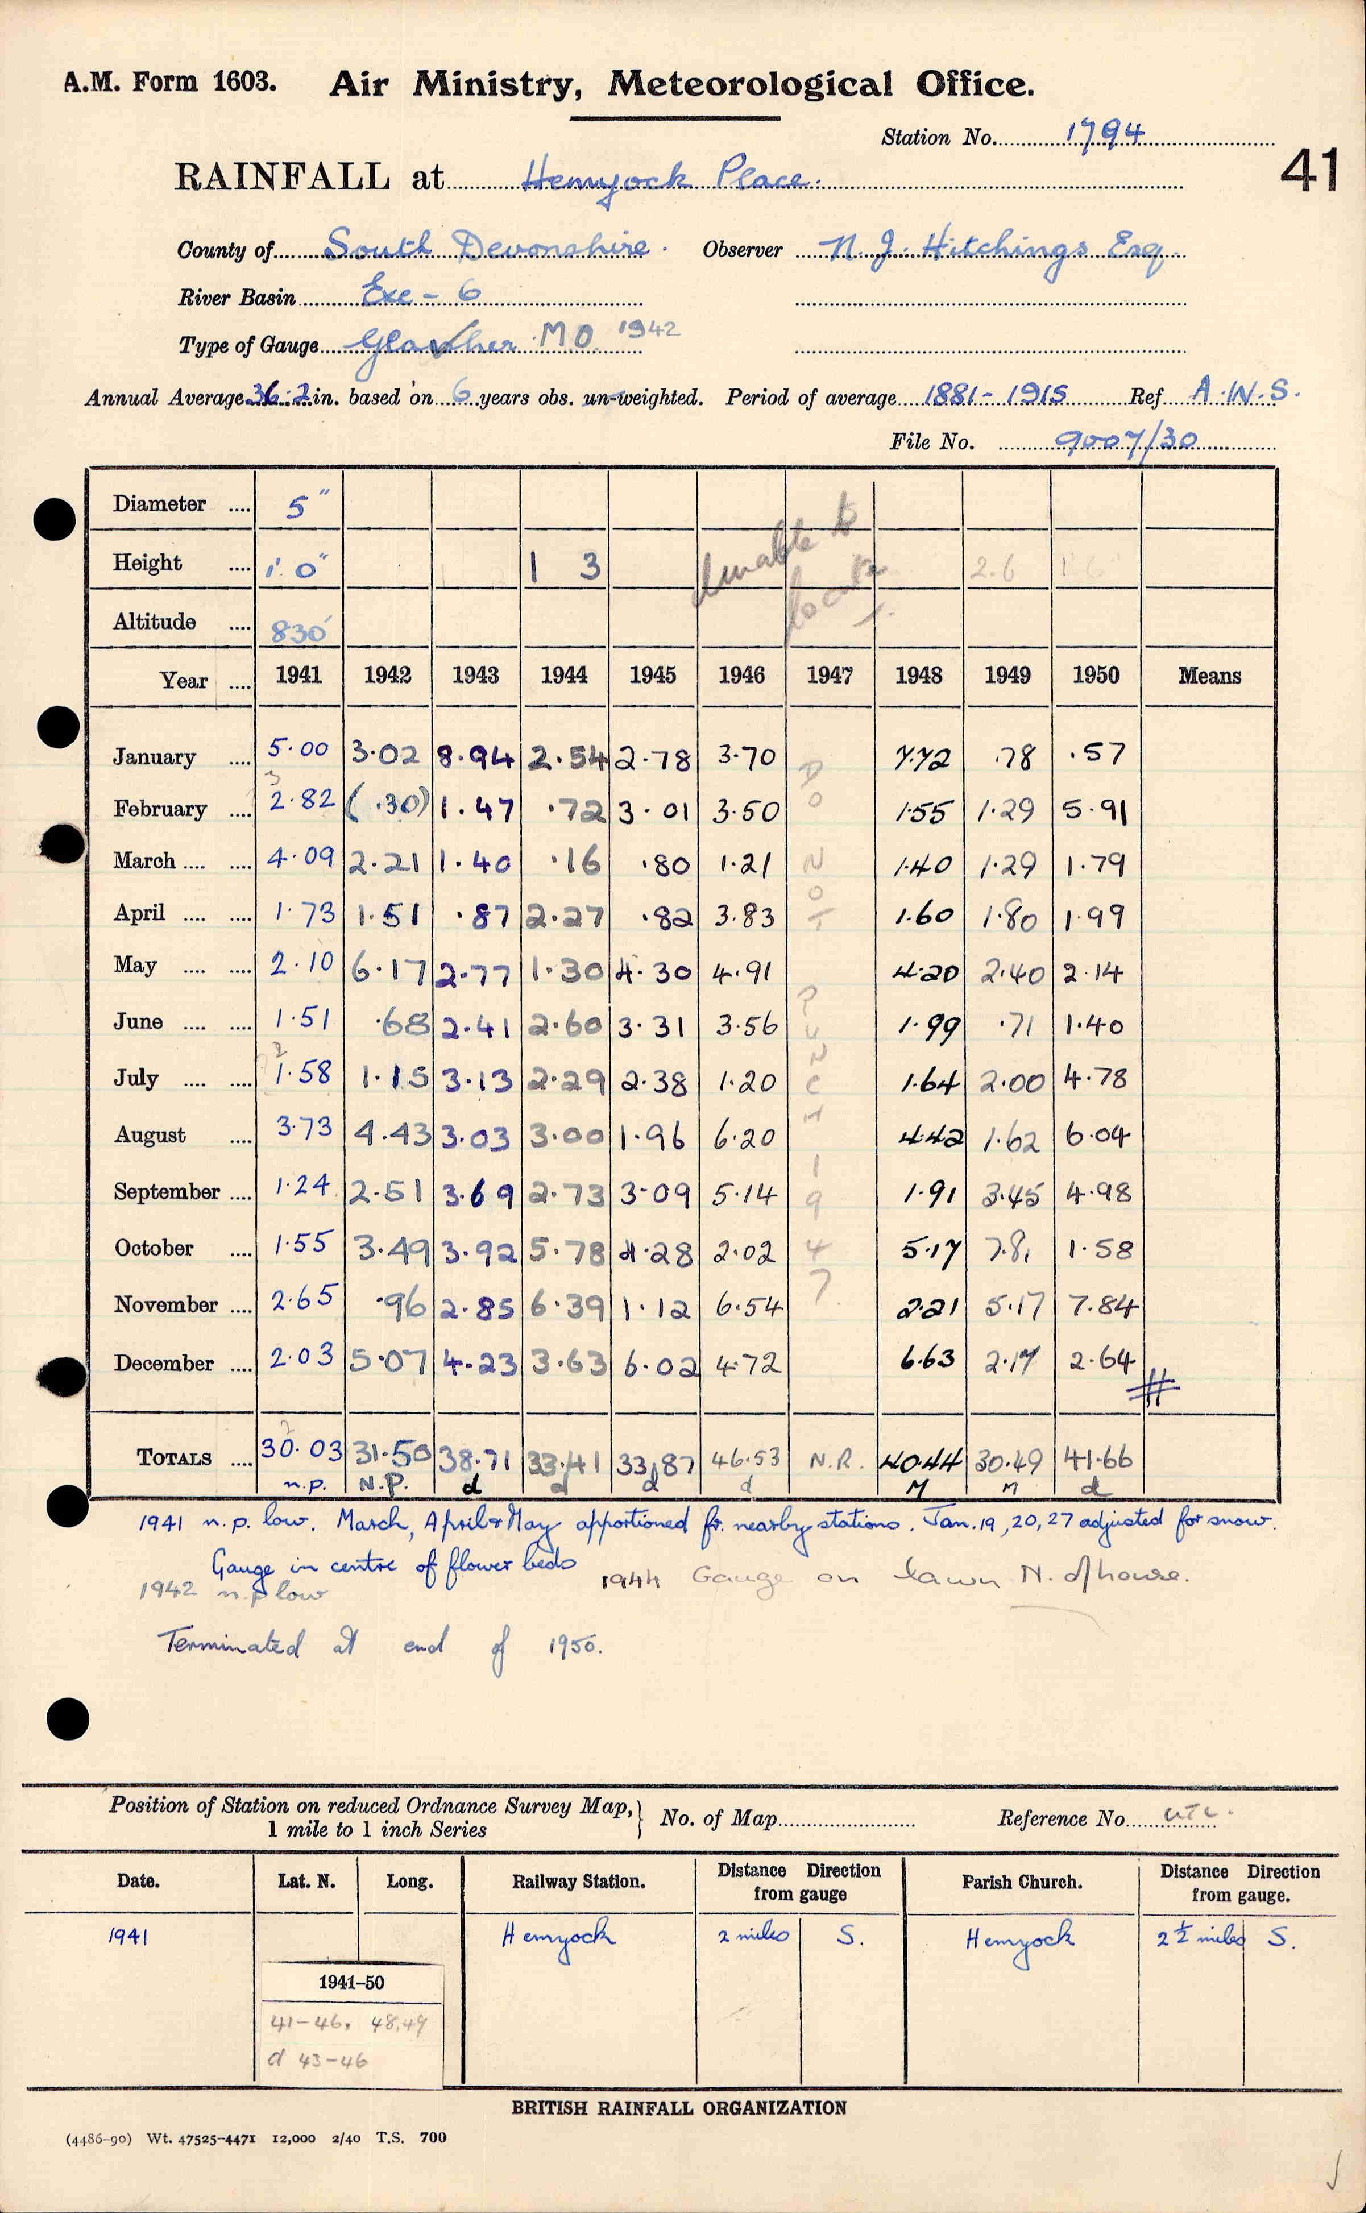 A.M. Form 1603. Air Ministry, Meteorological Office.
Station No. 1794
41
RAINFALL at Hemyock Place.
County of South Devonshire. Observer N. J. Hitchings Esq
River Basin Exe - 6
Type of Gauge Glaisher M.O. 1942
Annual Average 36.2 in. based on 6 years obs. un-weighted. Period of average 1881-1915 Ref A.W.S.
File No. 9007/30
Diameter .... 5"
Height .... 1' 0" 1 3 2.6 1 6
Unable to locate
Altitude .... 830'
Year .... 1941 1942 1943 1944 1945 1946 1947 1948 1949 1950 Means
January .... 5.00 3.02 8.94 2.54 2.78 3.70 7.72 .78 .57
February .... 2.82 3 (.30) 1.47 .72 3.01 3.50 1.55 1.29 5.91
March .... .... 4.09 2.21 1.40 .16 .80 1.21 1.40 1.29 1.79
April .... .... 1.73 1.51 .87 2.27 .82 3.83 1.60 1.80 1.99
May .... .... 2.10 6.17 2.77 1.30 4.30 4.91 4.20 2.40 2.14
June .... .... 1.51 .68 2.41 2.60 3.31 3.56 1.99 .71 1.40
July .... .... 1.58 2 1.15 3.13 2.29 2.38 1.20 1.64 2.00 4.78
August .... 3.73 4.43 3.03 3.00 1.96 6.20 4.42 1.62 6.04
September .... 1.24 2.51 3.69 2.73 3.09 5.14 1.91 3.45 4.98
October .... 1.55 3.49 3.92 5.78 4.28 2.02 5.17 7.81 1.58
November .... 2.65 .96 2.85 6.39 1.12 6.54 2.21 5.17 7.84
December .... 2.03 5.07 4.23 3.63 6.02 4.72 6.63 2.17 2.64
DO NOT PUNCH 1947
TOTALS .... 30.03 2 31.50 38.71 33.41 33.87 46.53 N.R. 40.44 30.49 41.66
n.p. N.P. d d d d M M d
1941 n.p. low. March, April & May apportioned fr. nearby stations. Jan. 19, 20, 27 adjusted for snow.
Gauge in centre of flower beds 1944 Gauge on lawn N. of house.
1942 n.p low
Terminated at end of 1950.
Position of Station on reduced Ordnance Survey Map, 1 mile to 1 inch Series } No. of Map Reference No.
Date. Lat. N. Long. Railway Station. Distance Direction from gauge Parish Church. Distance Direction from gauge.
1941 Hemyock 2 miles S. Hemyock 2½ miles S.
1941-50
41-46, 48,49
d 43-46
BRITISH RAINFALL ORGANIZATION
(4486-90) Wt. 47525-4471 12,000 2/40 T.S. 700